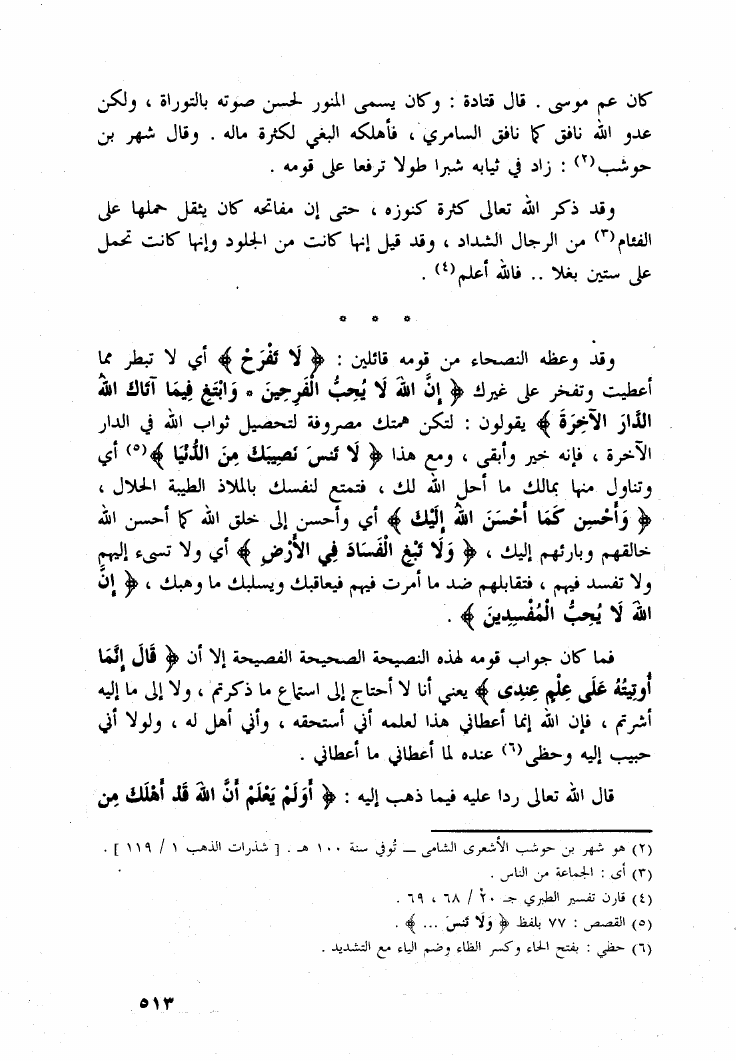 كان عم موسى . قال قتادة : وكان يسمى المنور لحسن صوته بالتوراة ، ولكن
عدو الله نافق كما نافق السامري ، فأهلكه البغي لكثرة ماله . وقال شهر بن
حوشب(٢) : زاد في ثيابه شبرا طولا ترفعا على قومه .
وقد ذكر الله تعالى كثرة كنوزه ، حتى إن مفاتحه كان يثقل حملها على
الفئام(٣) من الرجال الشداد ، وقد قيل إنها كانت من الجلود وإنها كانت تحمل
على ستين بغلا .. فالله أعلم(٤) .
* * *
وقد وعظه النصحاء من قومه قائلين : ﴿ لَا تَفْرَحْ ﴾ أي لا تبطر مما
أعطيت وتفخر على غيرك ﴿ إِنَّ اللهَ لَا يُحِبُّ الْفَرِحِينَ * وَابْتَغِ فِيمَا آتَاكَ اللهُ
الدَّارَ الْآخِرَةَ ﴾ يقولون : لتكن همتك مصروفة لتحصيل ثواب الله في الدار
الآخرة ، فإنه خير وأبقى ، ومع هذا ﴿ لَا تَنسَ نَصِيبَكَ مِنَ الدُّنْيَا ﴾(٥) أي
وتناول منها بمالك ما أحل الله لك ، فتمتع لنفسك بالملاذ الطيبة الحلال ،
﴿ وَأَحْسِن كَمَا أَحْسَنَ اللهُ إِلَيْكَ ﴾ أي وأحسن إلى خلق الله كما أحسن الله
خالقهم وبارئهم إليك ، ﴿ وَلَا تَبْغِ الْفَسَادَ فِي الْأَرْضِ ﴾ أي ولا تسيء إليهم
ولا تفسد فيهم ، فتقابلهم ضد ما أمرت فيهم فيعاقبك ويسلبك ما وهبك ، ﴿ إِنَّ
اللهَ لَا يُحِبُّ الْمُفْسِدِينَ ﴾ .
فما كان جواب قومه لهذه النصيحة الصحيحة الفصيحة إلا أن ﴿ قَالَ إِنَّمَا
أُوتِيتُهُ عَلَى عِلْمٍ عِندِى ﴾ يعني أنا لا أحتاج إلى استماع ما ذكرتم ، ولا إلى ما إليه
أشرتم ، فإن الله إنما أعطاني هذا لعلمه أني أستحقه ، وأني أهل له ، ولولا أني
حبيب إليه وحظي(٦) عنده لما أعطاني ما أعطاني .
قال الله تعالى ردا عليه فيما ذهب إليه : ﴿ أَوَلَمْ يَعْلَمْ أَنَّ اللهَ قَدْ أَهْلَكَ مِن
(٢) هو شهر بن حوشب الأشعرى الشامى — تُوفي سنة ١٠٠ هـ . [ شذرات الذهب ١ / ١١٩ ] .
(٣) أى : الجماعة من الناس .
(٤) قارن تفسير الطبري جـ ٢٠ / ٦٨ ، ٦٩ .
(٥) القصص : ٧٧ بلفظ ﴿ وَلَا تَنسَ ... ﴾ .
(٦) حظي : بفتح الحاء وكسر الظاء وضم الياء مع التشديد .
٥١٣